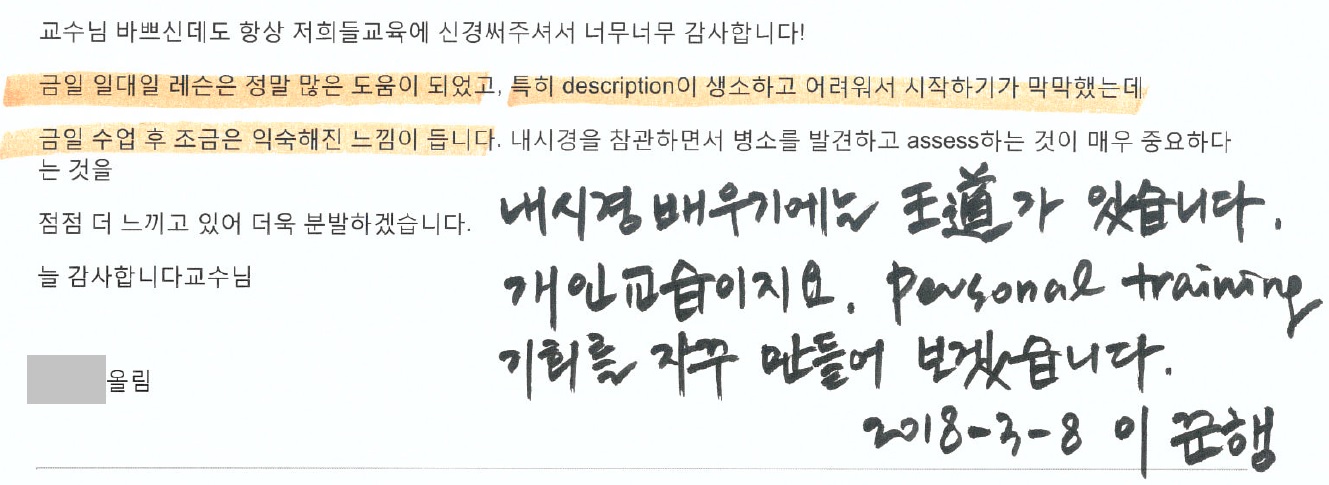 교수님 바쁘신데도 항상 저희들교육에 신경써주셔서 너무너무 감사합니다!
금일 일대일 레슨은 정말 많은 도움이 되었고, 특히 description이 생소하고 어려워서 시작하기가 막막했는데
금일 수업 후 조금은 익숙해진 느낌이 듭니다. 내시경을 참관하면서 병소를 발견하고 assess하는 것이 매우 중요하다
는 것을
점점 더 느끼고 있어 더욱 분발하겠습니다.
늘 감사합니다교수님
올림
내시경 배우기에는 王道가 있습니다.
개인교습이지요. Personal training
기회를 자꾸 만들어 보겠습니다.
2018-3-8 이준행